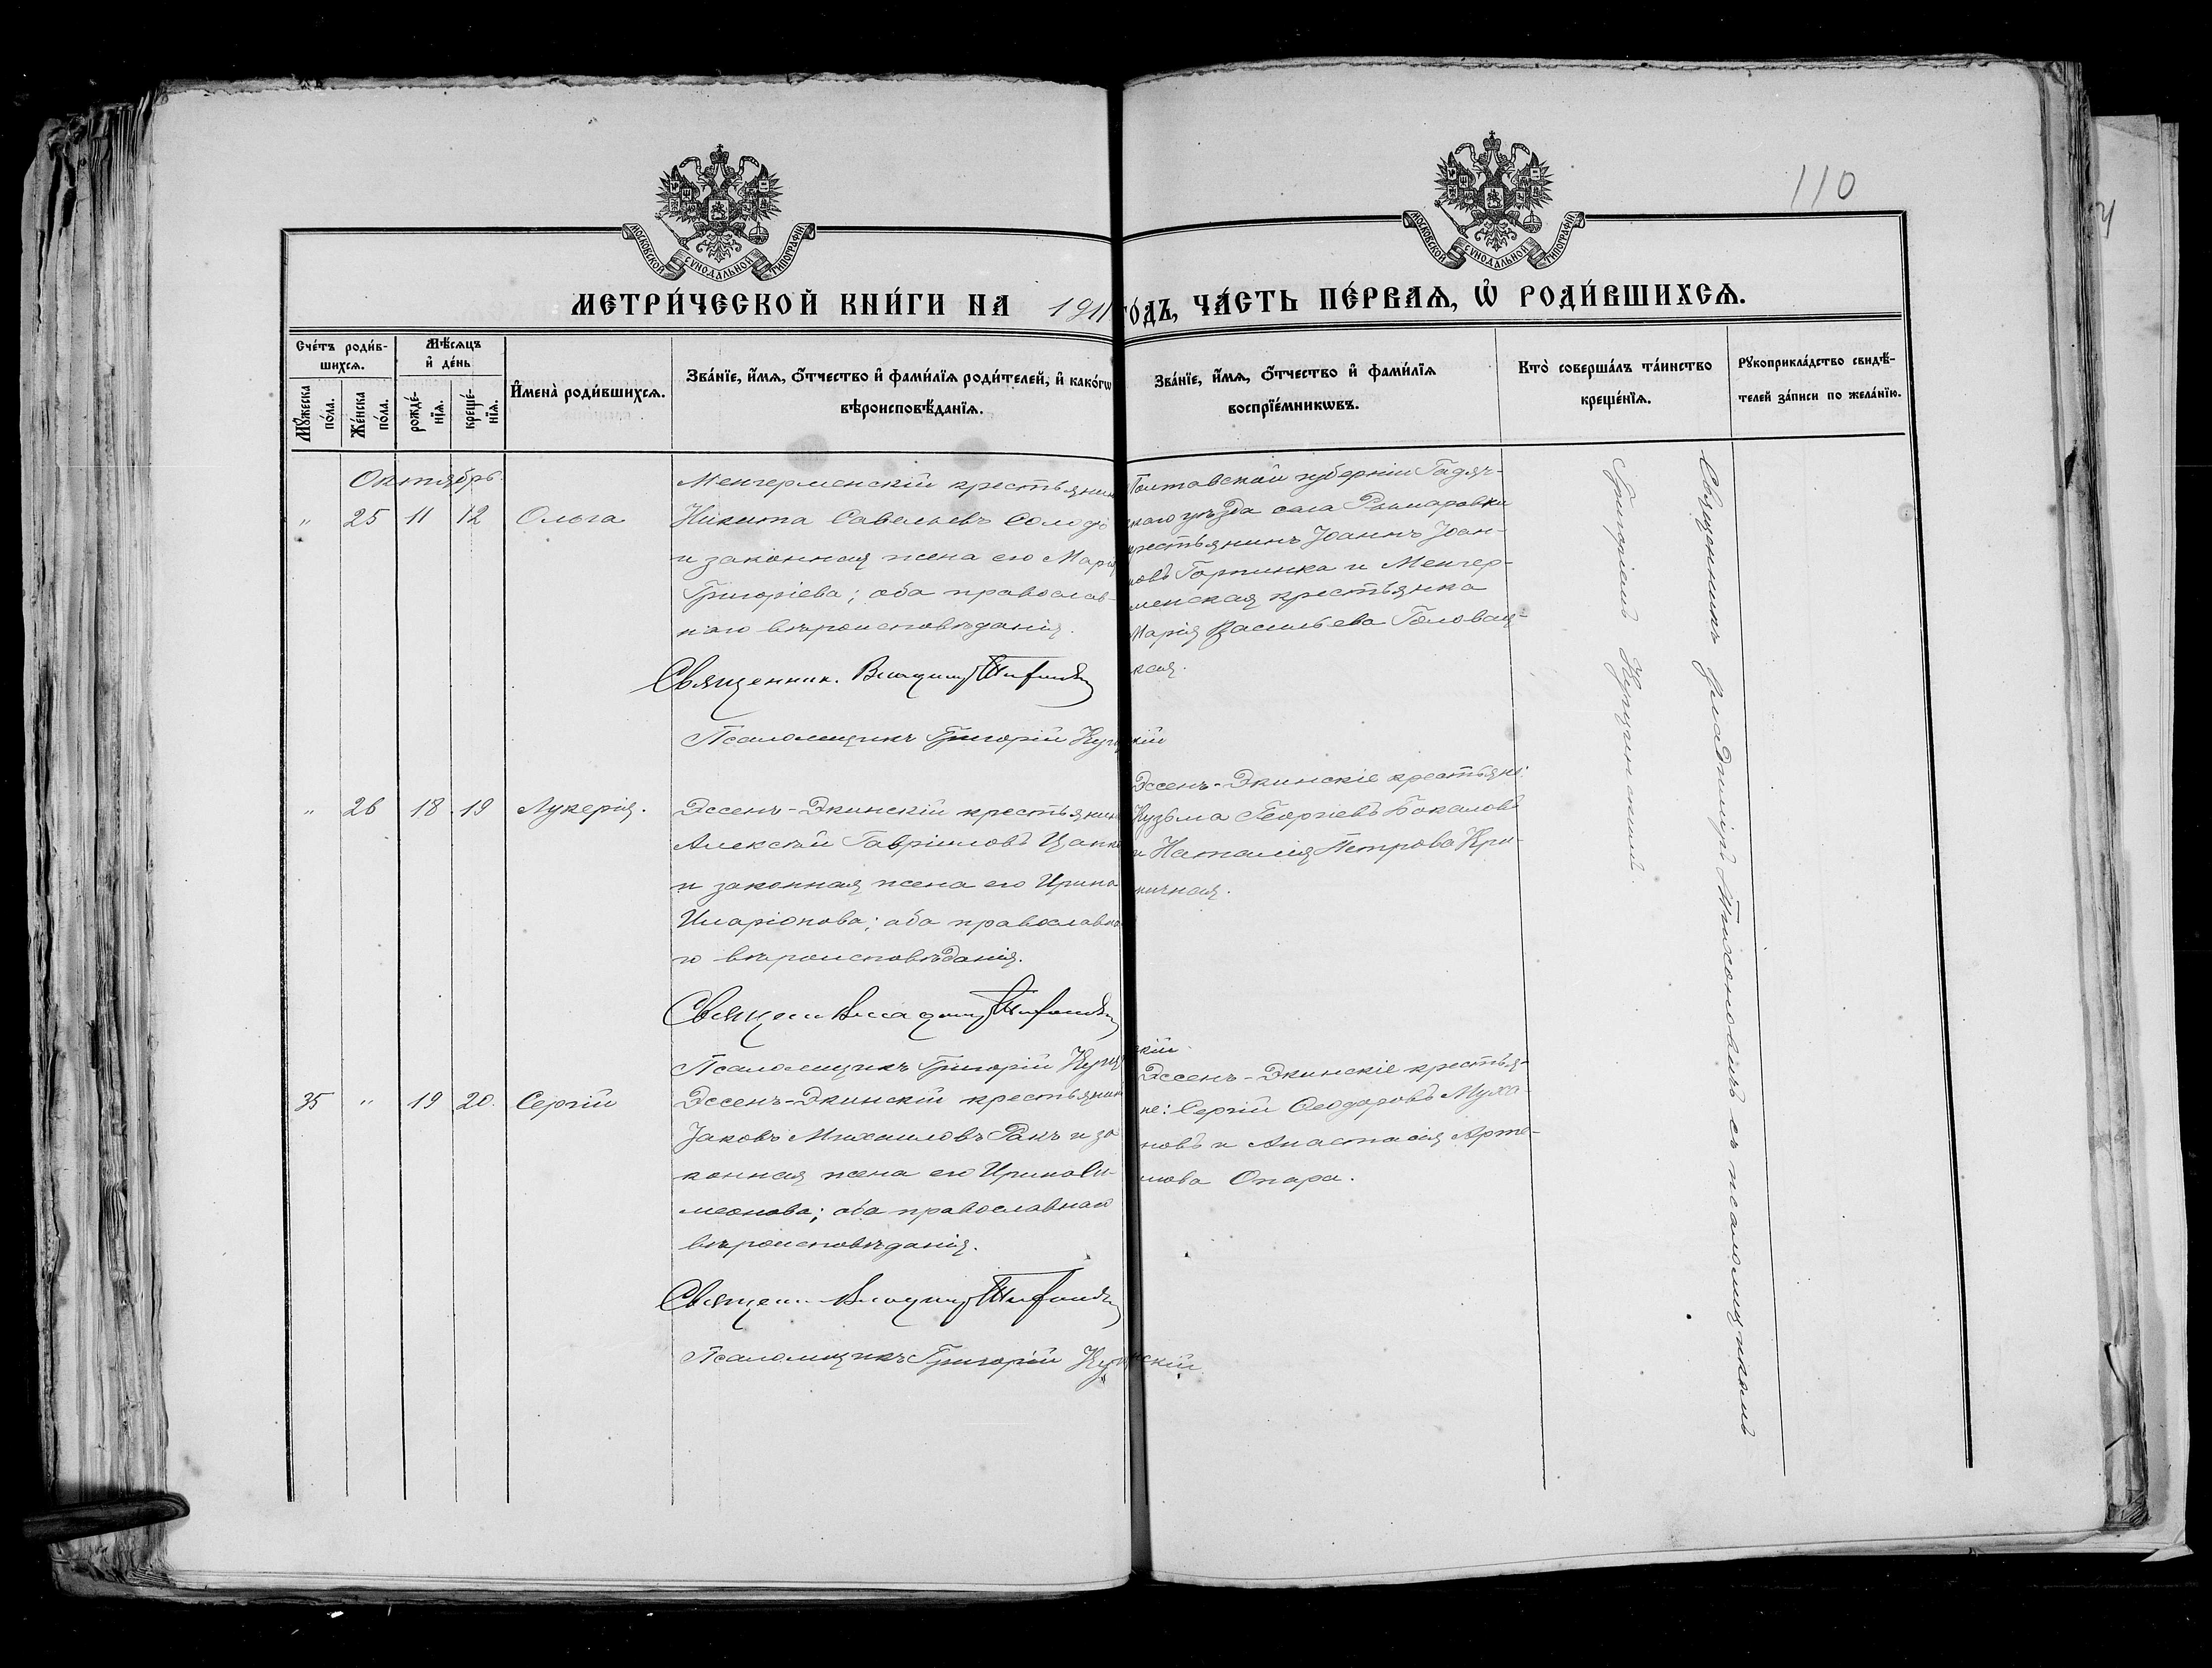 110
МОСКОВСКОЙ СУНОДАЛЬНОЙ ТИПОГРАФІИ
МОСКОВСКОЙ СУНОДАЛЬНОЙ ТИПОГРАФІИ
МЕТРИ́ЧЕСКОЙ КНИ́ГИ НА 1911 ГО́ДЪ, ЧА́СТЬ ПЕ́РВАѦ, Ѽ РОДИ́ВШИХСѦ.
Сче́тъ роди́в-
шихсѧ.
Мꙋ́жеска по́ла.
Же́нска по́ла.
Мѣ́сѧцъ
и҆ де́нь
рожде́-
нїѧ.
креще́-
нїѧ.
И҆мена̀ роди́вшихсѧ.
Зва́нїе, и҆́мѧ, ѻ҆́тчество и҆ фами́лїѧ роди́телей, и҆ како́гѡ
вѣроисповѣ́данїѧ.
Зва́нїе, и҆́мѧ, ѻ҆́тчество и҆ фами́лїѧ
воспрїе́мникѡвъ.
Кто̀ соверша́лъ та́инство
креще́нїѧ.
Рꙋкоприкла́дство свидѣ́-
телей за́писи по жела́нїю.
Октябрь.
" 25 11 12 Ольга
Менгерменскій крестьянин
Никита Савельевъ Солод
и законная жена его Марія
Григоріева; оба православ-
наго вѣроисповѣданія.
Священник. Владимір
Псаломщикъ Григорій
Полтавской губерніи Гадяч-
скаго уѣзда села Рымаровки
крестьянинъ Іоаннъ Іоан-
новъ Горпинка и Менгер-
менская крестьянка
Марія Васильева Головац-
кая.
" 26 18 19 Лукерія.
Эссенъ-Экинскій крестьянин
Алексѣй Гавріиловъ Цапко
и законная жена его Ирина
Иларіонова; оба православна
го вѣроисповѣданія.
Священ Владимір
Псаломщикъ Григорій
Эссенъ-Экинскіе крестьяне:
Кузьма Георгіевъ Бокаловъ
и Наталія Петрова Кри-
ничная.
35 " 19 20. Сергій
Эссенъ-Экинскій крестьянин
Іаковъ Михаиловъ Ракъ и за
конная жена его Ирина Си-
меонова; оба православнаго
вѣроисповѣданія.
Священ. Владимір
Псаломщикъ Григорій
Эссенъ-Экинскіе крестья-
не: Сергій Ѳеодоровъ Муха-
новъ и Анастасія Арте-
мова Опара.
Священникъ Владиміръ Тихоновичъ съ псаломщикомъ
Григоріемъ